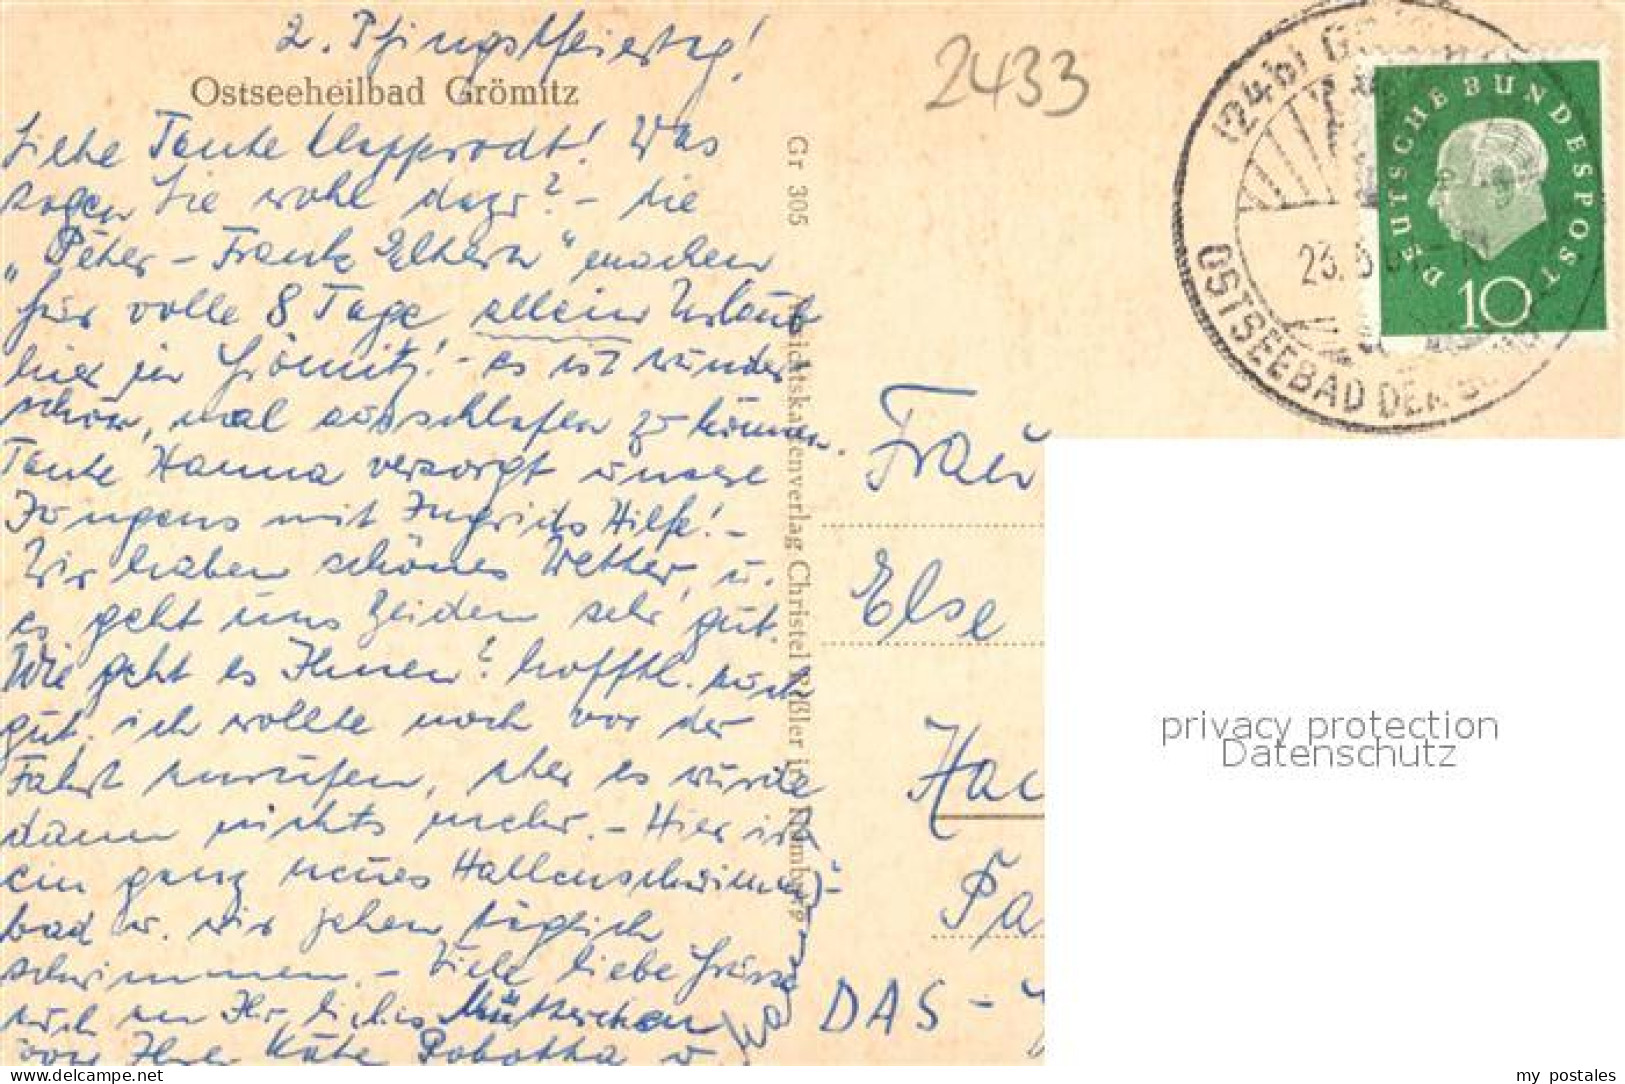 2. Pfingstfeiertag!
Ostseeheilbad Grömitz
Liebe Tante Klapprodt! Was
sagen Sie wohl dazu? - die
„Peter-Frank Eltern" machen
für volle 8 Tage allein Urlaub
hier in Grömitz! - es ist wunder
schön, mal ausschlafen zu können.
Tante Hanna versorgt unsere
Jungens mit Ingrids Hilfe! -
Wir haben schönes Wetter, u.
es geht uns beiden sehr gut.
Wie geht es Ihnen? hofftl. auch
gut, ich wollte noch vor der
Fahrt anrufen, aber es wurde
dann nichts mehr. - Hier ist
ein ganz neues Hallenschwimm-
bad u. wir gehen täglich
schwimmen. - Viele liebe Grüsse
auch an Ihr liebes Mütterchen
von Ihrer Käte Pobotka u
Gr 305
Ansichtskartenverlag Christel Rößler in Hamburg
2433
(24b)
23.5
OSTSEEBAD DER
DEUTSCHE BUNDESPOST
10
Frau
Else
Hac
Pa
DAS -
privacy protection
Datenschutz
delcampe.net
my_postales